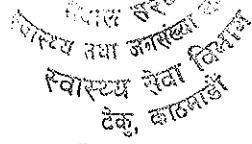 नेपाल
स्वास्थ्य तथा जनसंख्या
स्वास्थ्य सेवा विभाग
टेकु, काठमाडौं